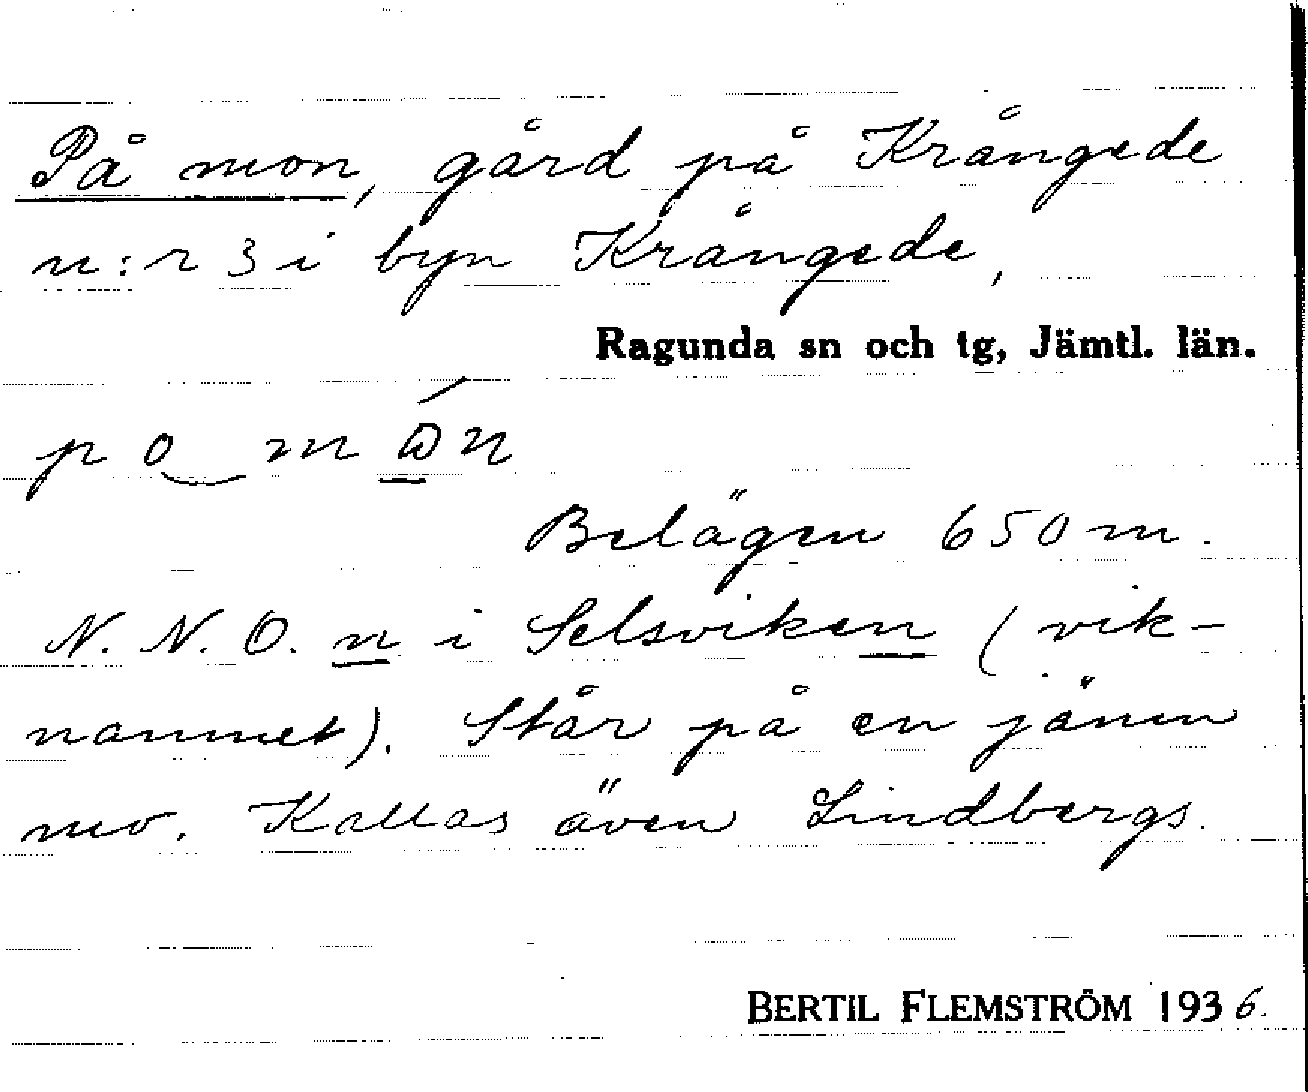 På mon, gård på Krångede
n:r 3 i byn Krångede,
Ragunda sn och tg, Jämtl. län.
Belägen 650 m.
N.N.O. n i Selsviken (vik-
namnet). Står på en jämn
mo. Kallas även Lindbergs.
BERTIL FLEMSTRÖM 1936.